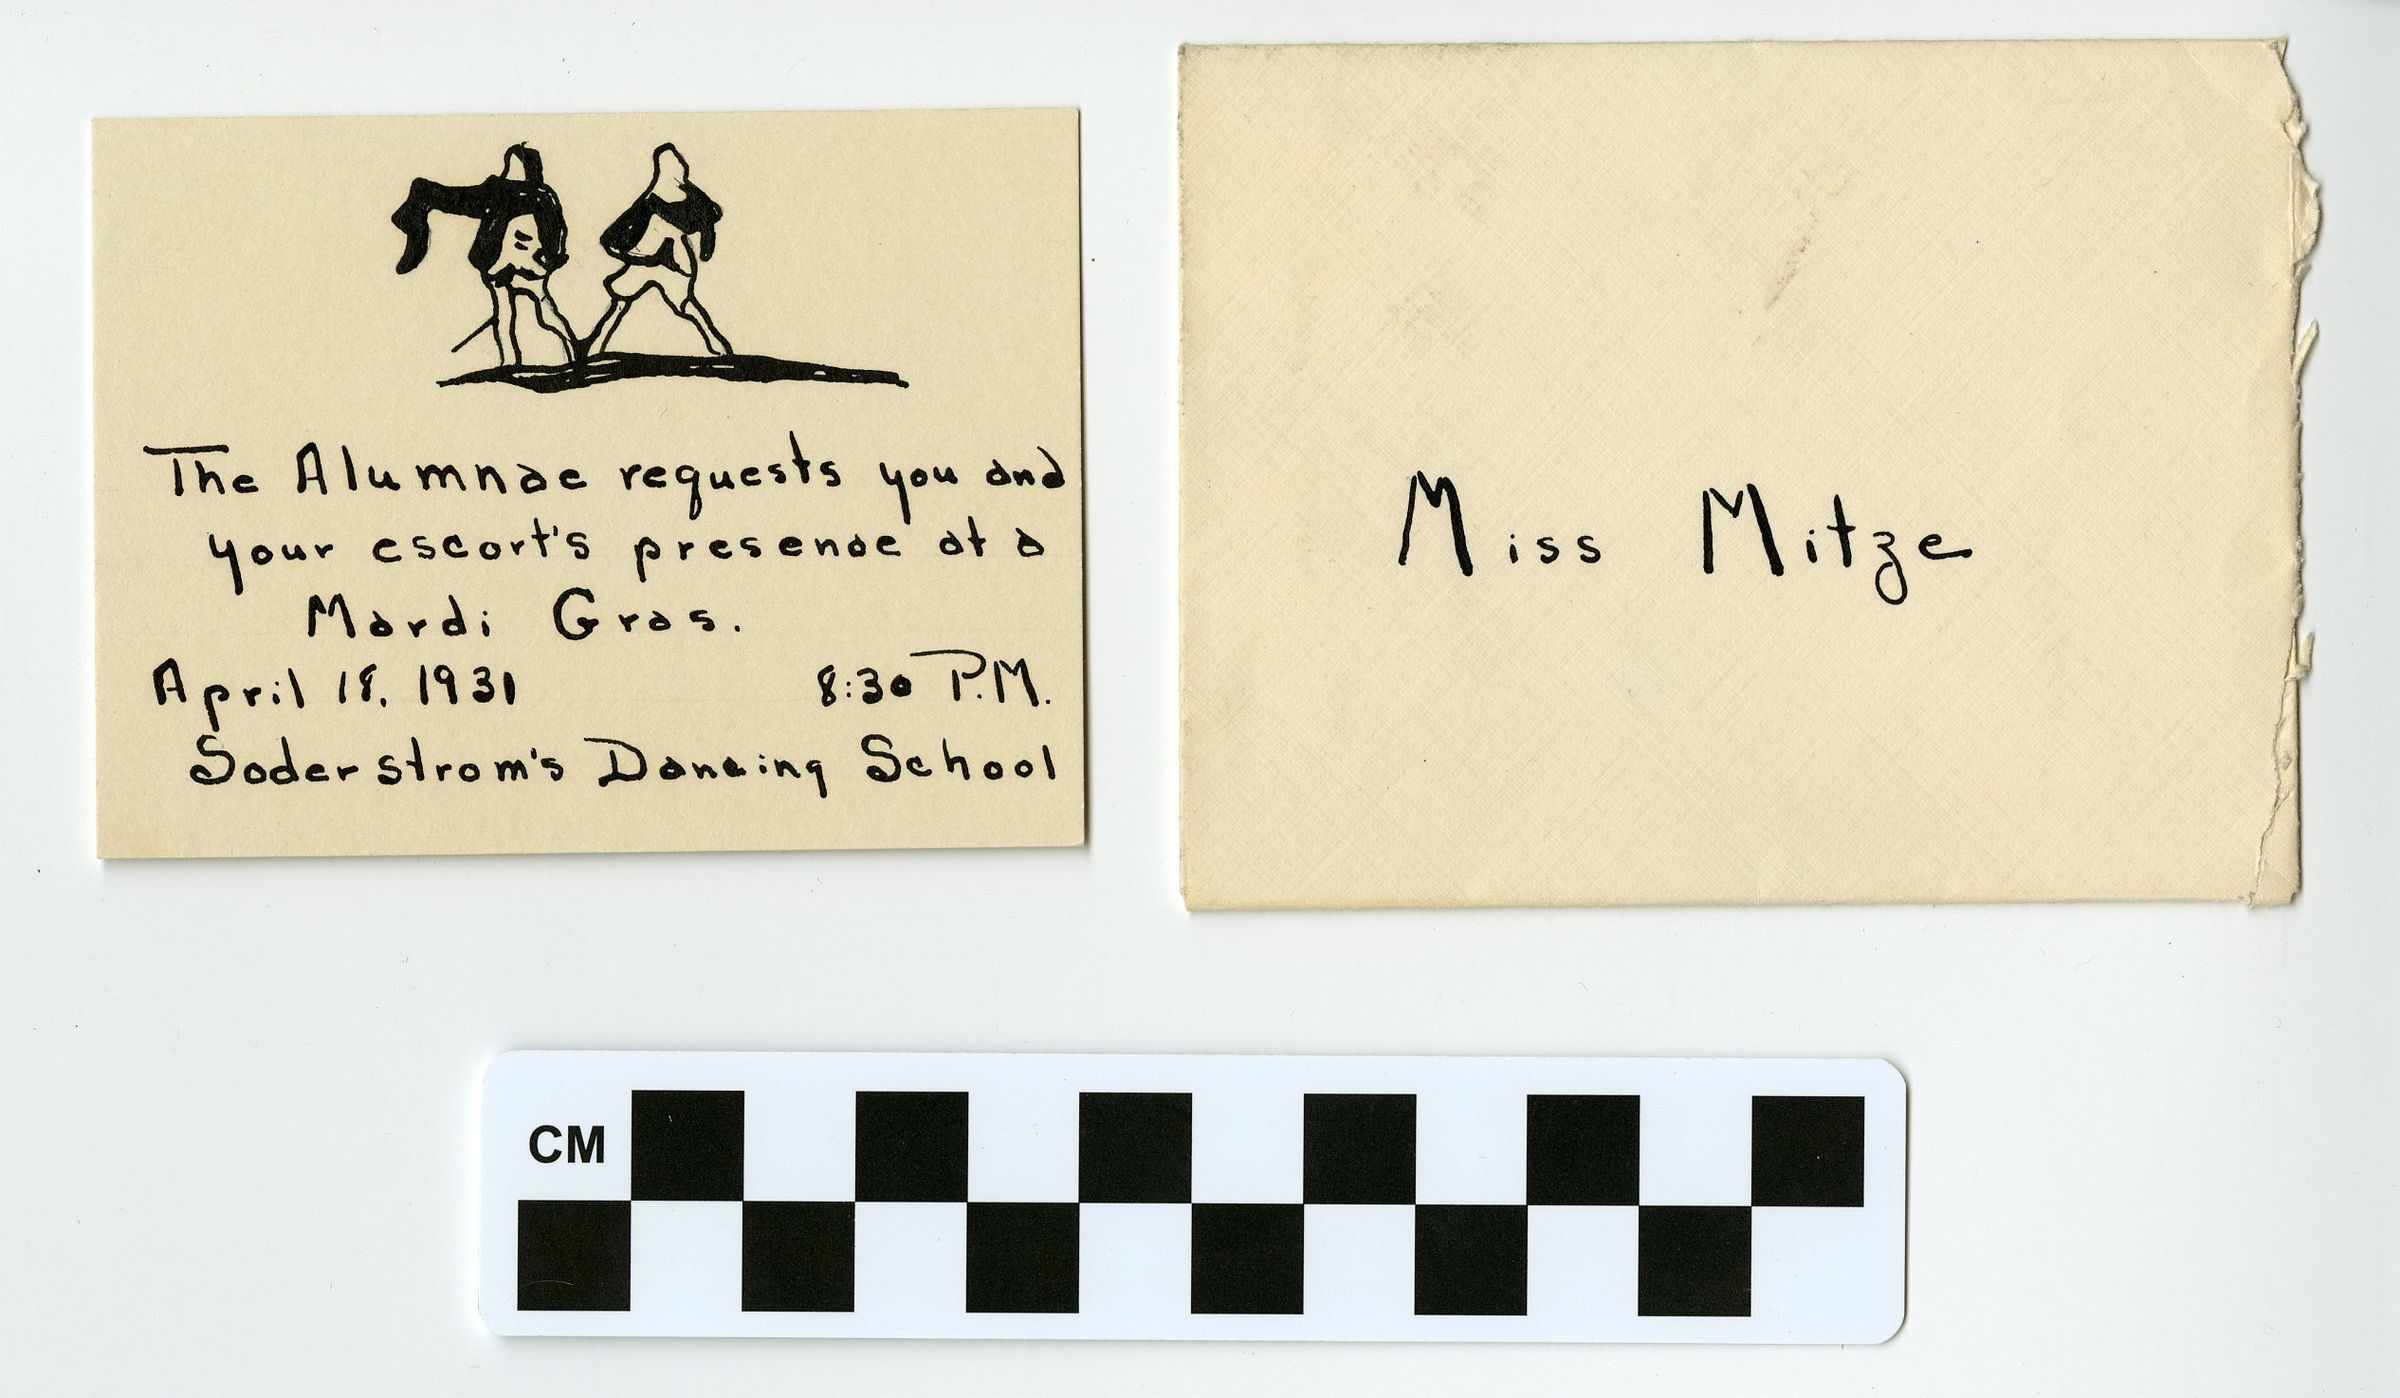 The Alumnae requests you and
your escort's presence at a
Mardi Gras.
April 18, 1931 8:30 P.M.
Soderstrom's Dancing School
Miss Mitze
CM